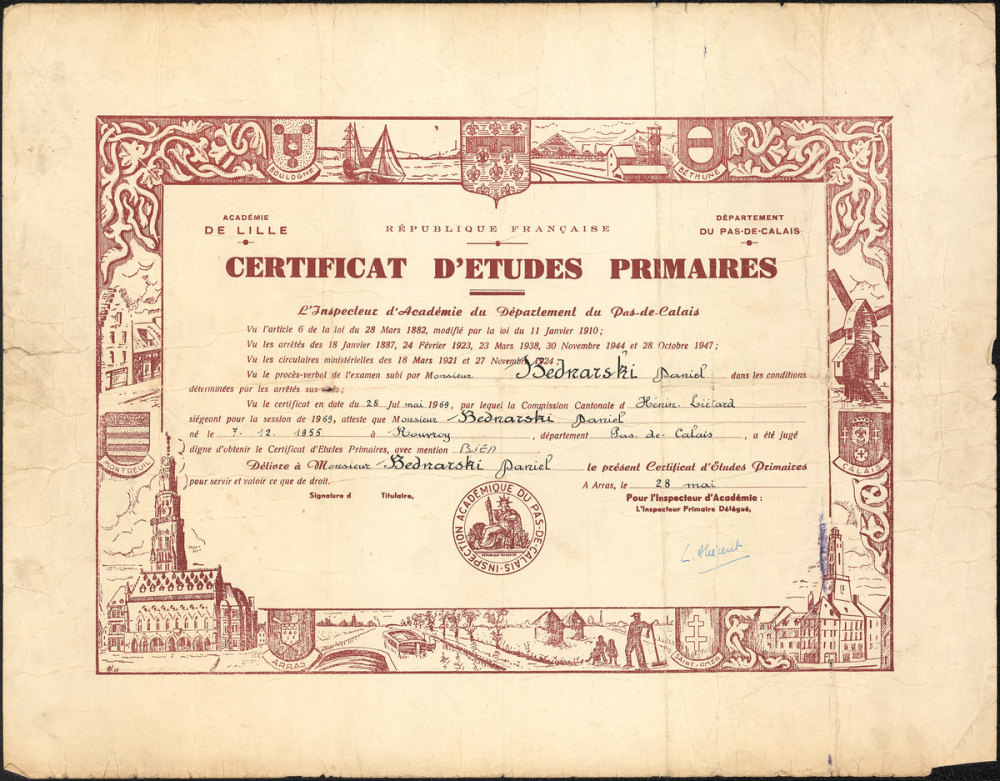 BOULOGNE
BÉTHUNE
ACADÉMIE
DE LILLE
RÉPUBLIQUE FRANÇAISE
DÉPARTEMENT
DU PAS-DE-CALAIS
CERTIFICAT D'ETUDES PRIMAIRES
L'Inspecteur d'Académie du Département du Pas-de-Calais
Vu l'article 6 de la loi du 28 Mars 1882, modifié par la loi du 11 Janvier 1910 ;
Vu les arrêtés des 18 Janvier 1887, 24 Février 1923, 23 Mars 1938, 30 Novembre 1944 et 28 Octobre 1947 ;
Vu les circulaires ministérielles des 18 Mars 1921 et 27 Novembre 1924 ;
Vu le procès-verbal de l'examen subi par Monsieur Bednarski Daniel dans les conditions
déterminées par les arrêtés sus-visés ;
Vu le certificat en date du 28 mai 1969, par lequel la Commission Cantonale d'Hénin. Liétard
siégeant pour la session de 1969, atteste que Monsieur Bednarski Daniel
né le 7. 12. 1955 à Rouvroy, département Pas. de. Calais, a été jugé
digne d'obtenir le Certificat d'Etudes Primaires, avec mention BIEN.
Délivre à Monsieur Bednarski Daniel le présent Certificat d'Études Primaires
pour servir et valoir ce que de droit.
A Arras, le 28 mai
Signature d Titulaire,
Pour l'Inspecteur d'Académie :
L'Inspecteur Primaire Délégué,
INSPECTION ACADÉMIQUE DU PAS-DE-CALAIS
MONTREUIL
CALAIS
ARRAS
SAINT-OMER